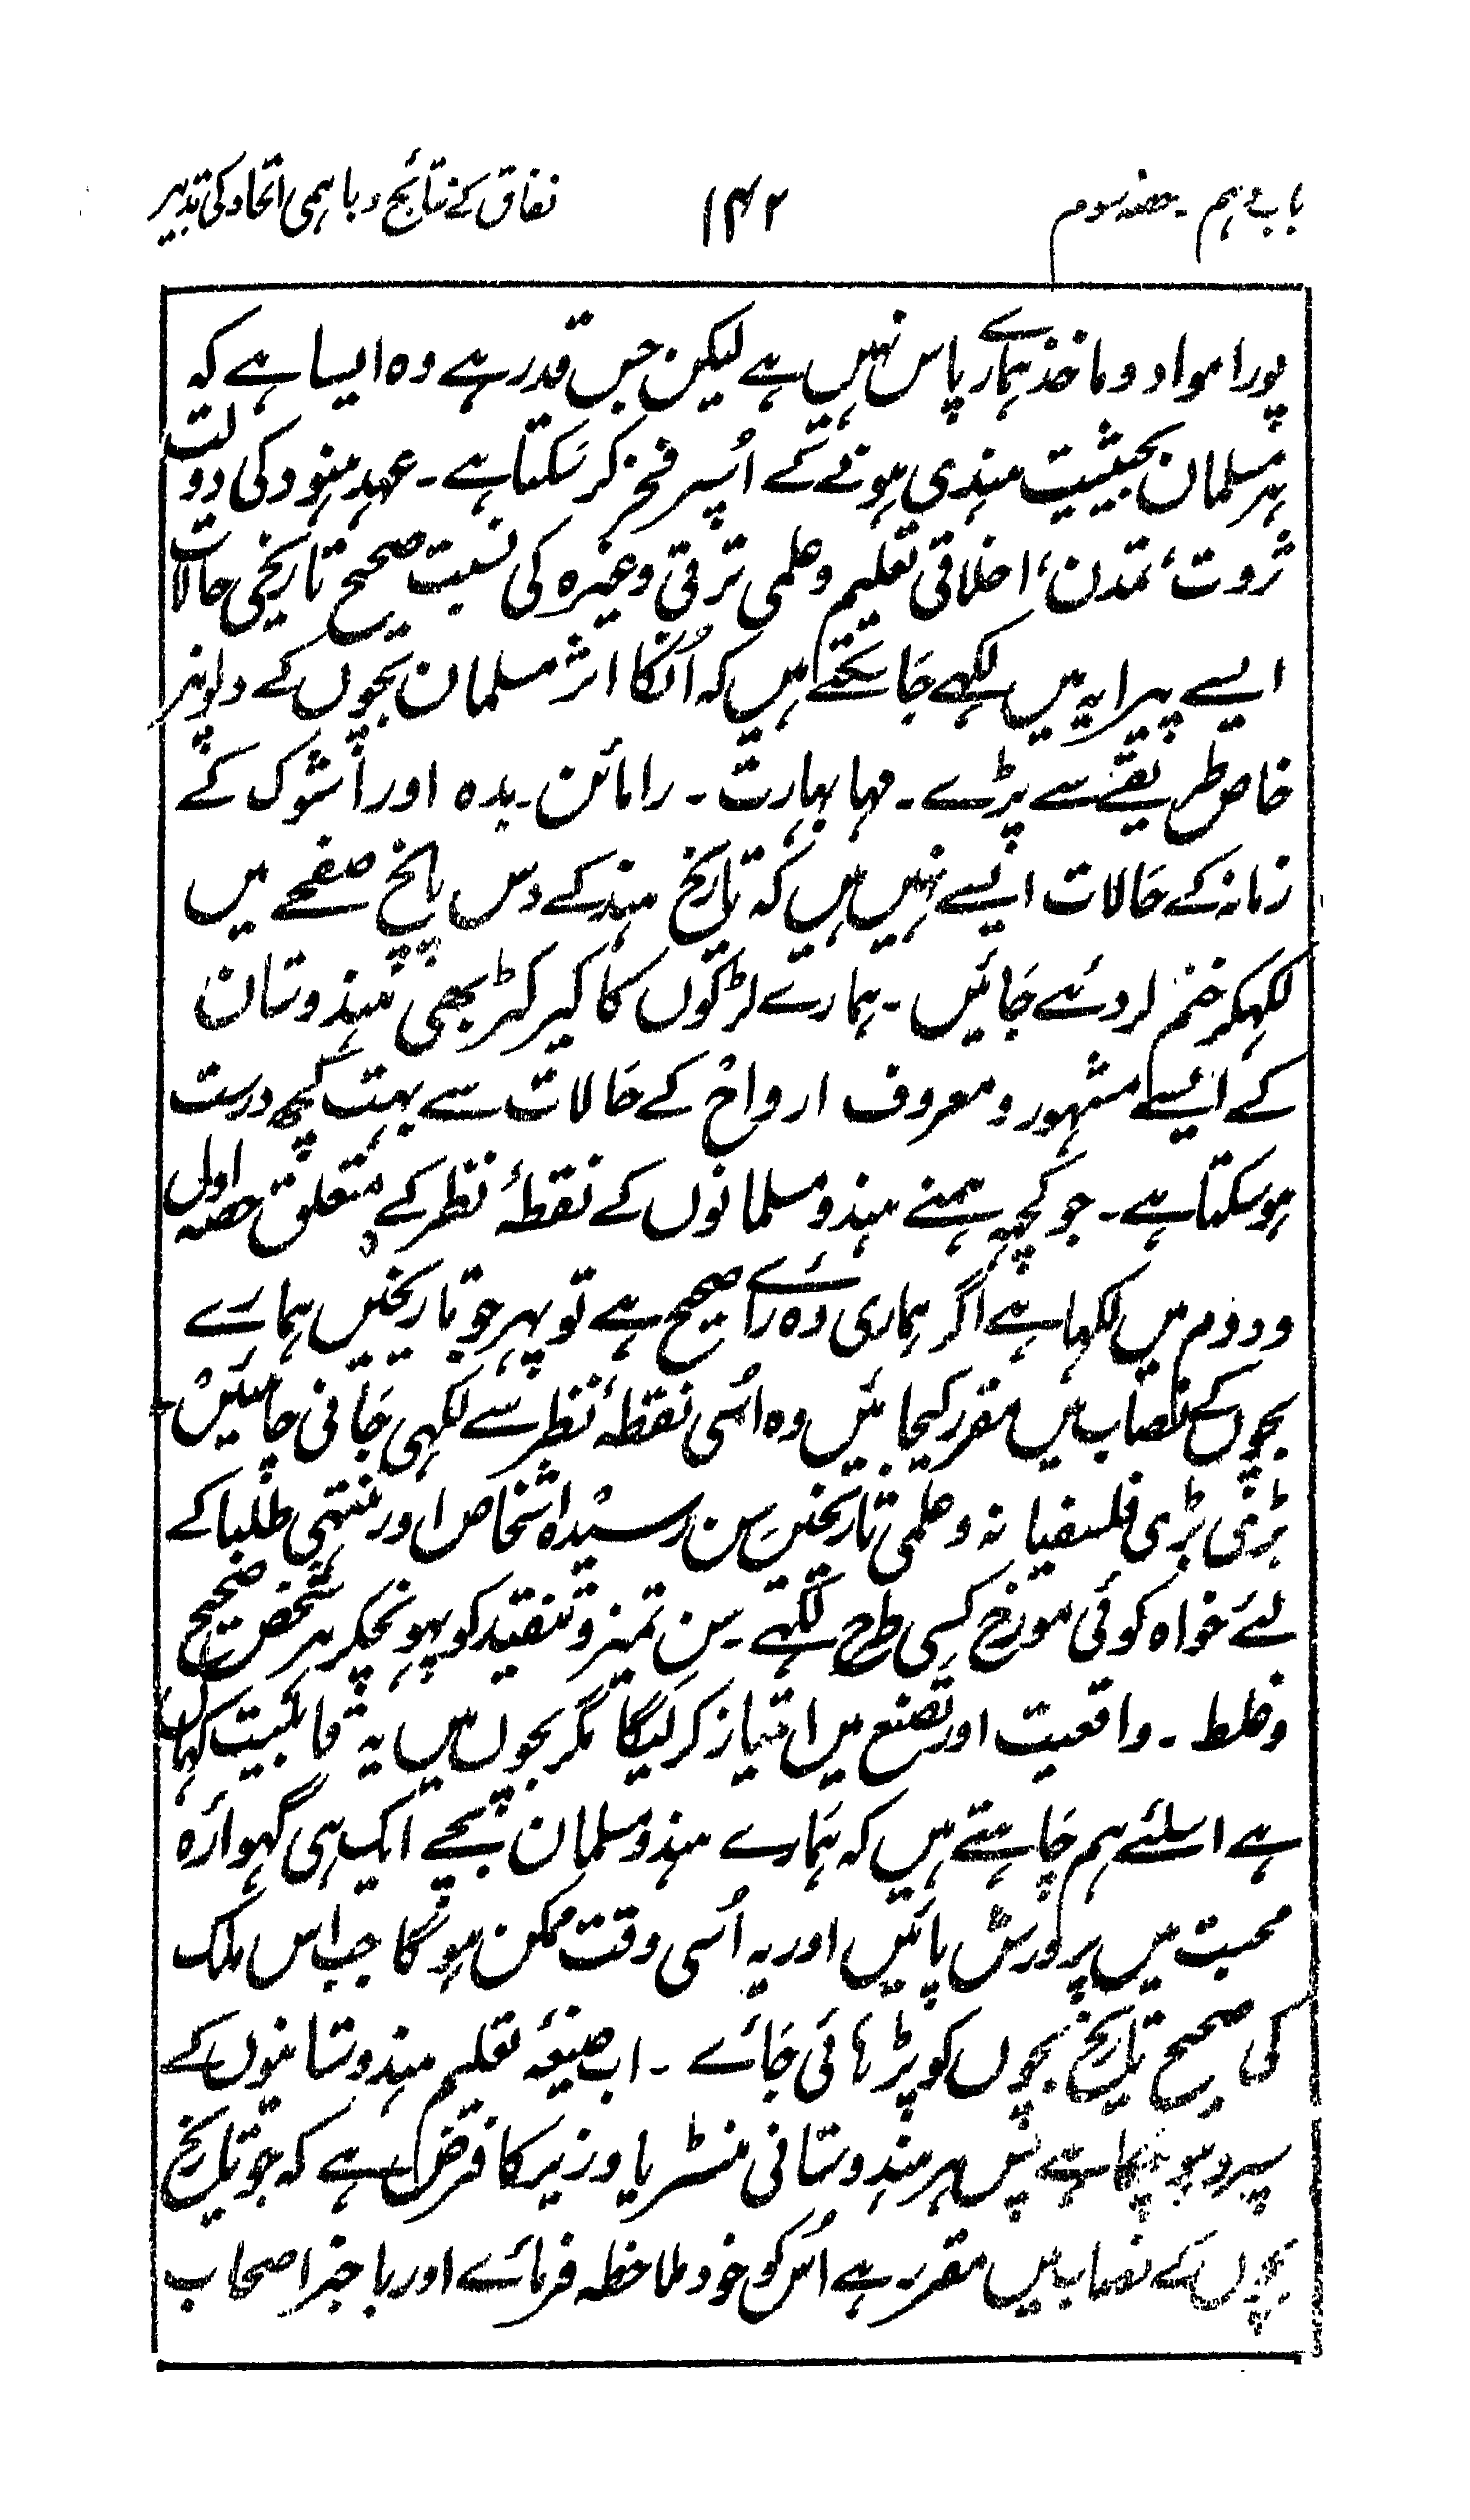 باب دہم - حصہ سوم ۱۴۲ نفاق کے نتائج و باہمی اتحاد کی تدبیر
پورا مواد و ماخذ ہمارے پاس نہیں ہے لیکن جس قدر ہے وہ ایسا ہے کہ
ہر مسلمان بحیثیت ہندی ہونے کے اُسپر فخر کر سکتا ہے - عہد ہنود کی دولت
ثروت، تمدن، اخلاقی تعلیم و علمی ترقی وغیرہ کی نسبت صحیح تاریخی حالات
ایسے پیرایہ میں لکھے جا سکتے ہیں کہ اُنکا اثر مسلمان بچوں کے دلونپر
خاص طریقے سے پڑے - مہا بہارت - رامائن - بدہ اور اشوک کے
زمانہ کے حالات ایسے نہیں ہیں کہ تاریخ ہند کے دس پانچ صفحے میں
لکہکر ختم کر دئے جائیں - ہمارے لڑکوں کا کیرکٹر بھی ہندوستان
کے ایسے مشہور و معروف ارواح کے حالات سے بہت کچھ درست
ہوسکتا ہے - جو کچہہ ہمنے ہندو مسلمانوں کے نقطۂ نظر کے متعلق حصہ اول
و دوم میں لکہا ہے اگر ہماری وہ رائے صحیح ہے تو پہر جو تاریخیں ہمارے
بچوں کے نصاب میں مقرر کیجائیں وہ اُسی نقطۂ نظر سے لکہی جانی چاہئیں -
بڑی بڑی فلسفیانہ و علمی تاریخیں سن رسیدہ اشخاص اور منتہی طلبا کے
لئے خواہ کوئی مورخ کسی طرح لکہے - سن تمیز و تنقید کو پہونچکر ہر شخص صحیح
و غلط - واقعیت اور تصنع میں امتیاز کر لیگا مگر بچوں میں یہ قابلیت کہاں
ہے اسلئے ہم چاہتے ہیں کہ ہمارے ہندو مسلمان بچے ایک ہی گہوارہ
محبت میں پرورش پائیں اور یہ اُسی وقت ممکن ہوگا جب اس ملک
کی صحیح تاریخ بچوں کو پڑہائی جائے - اب صیغۂ تعلیم ہندوستانیوں کے
سپرد ہو چکا ہے پس ہر ہندوستانی منسٹر یا وزیر کا فرض ہے کہ جو تاریخ
بچوں کے نصاب میں مقرر ہے اُس کو خود ملاحظہ فرمائے اور باخبر اصحاب